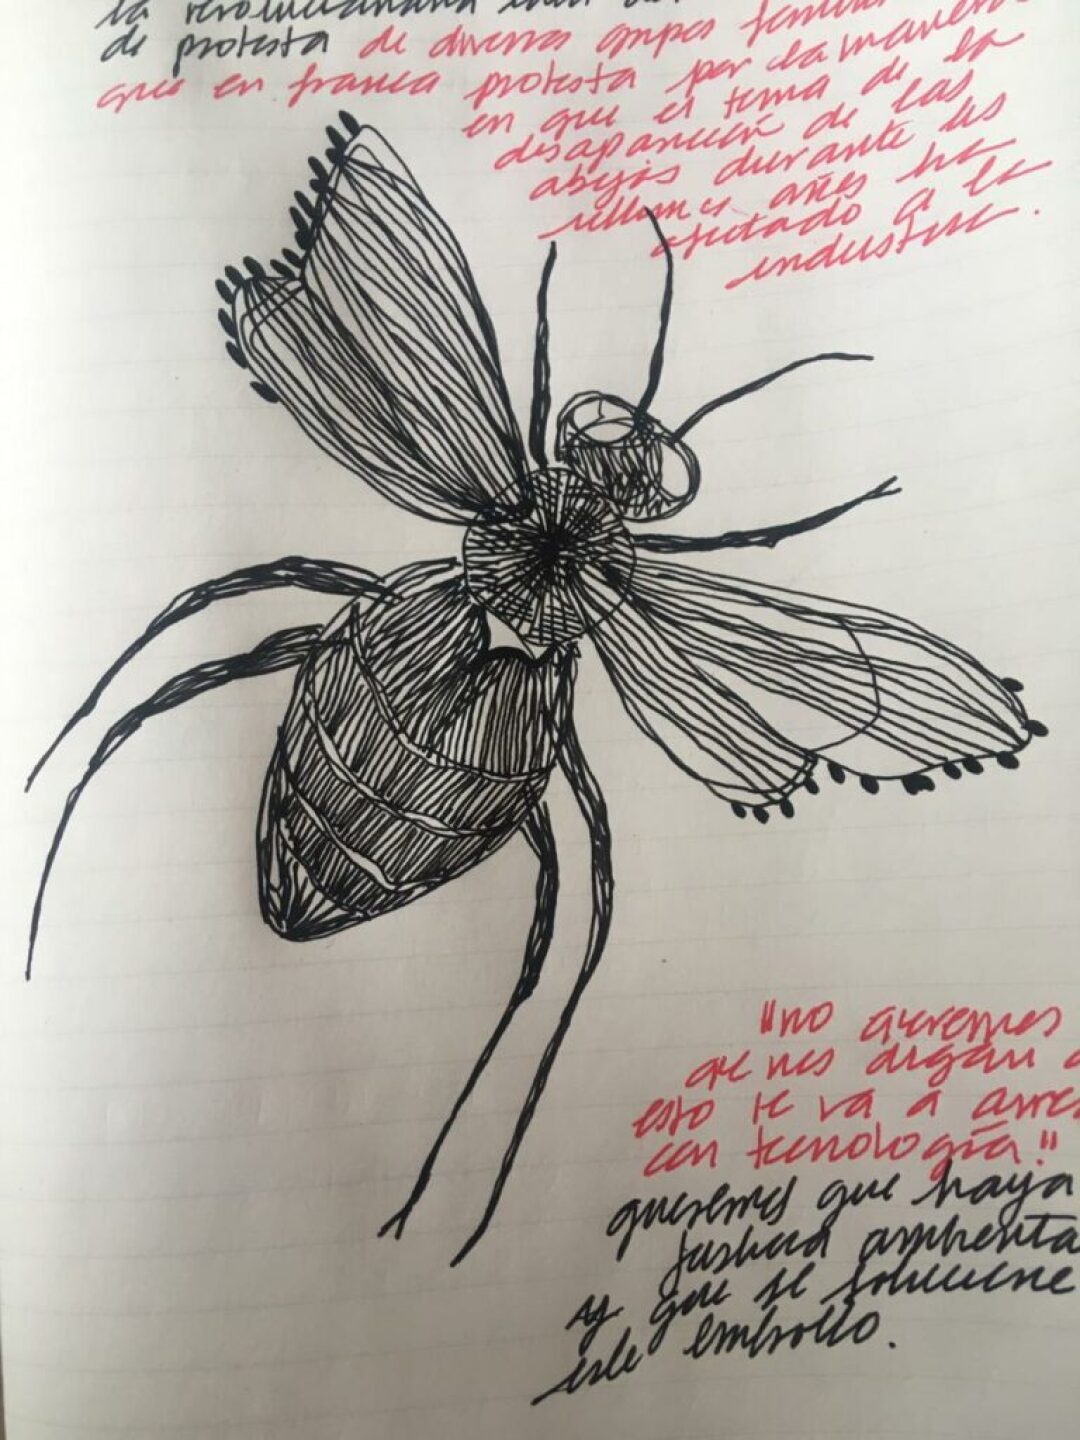 la revolucionaria
de protesta de diversos grupos
que en franca protesta por la manera
en que el tema de la
desaparición de las
abejas durante los
años ha
afectado a la
industria.
"no queremos
que nos digan
esto se va a
con tecnología."
queremos que haya
justicia ambienta
y que se solucione
este embrollo.